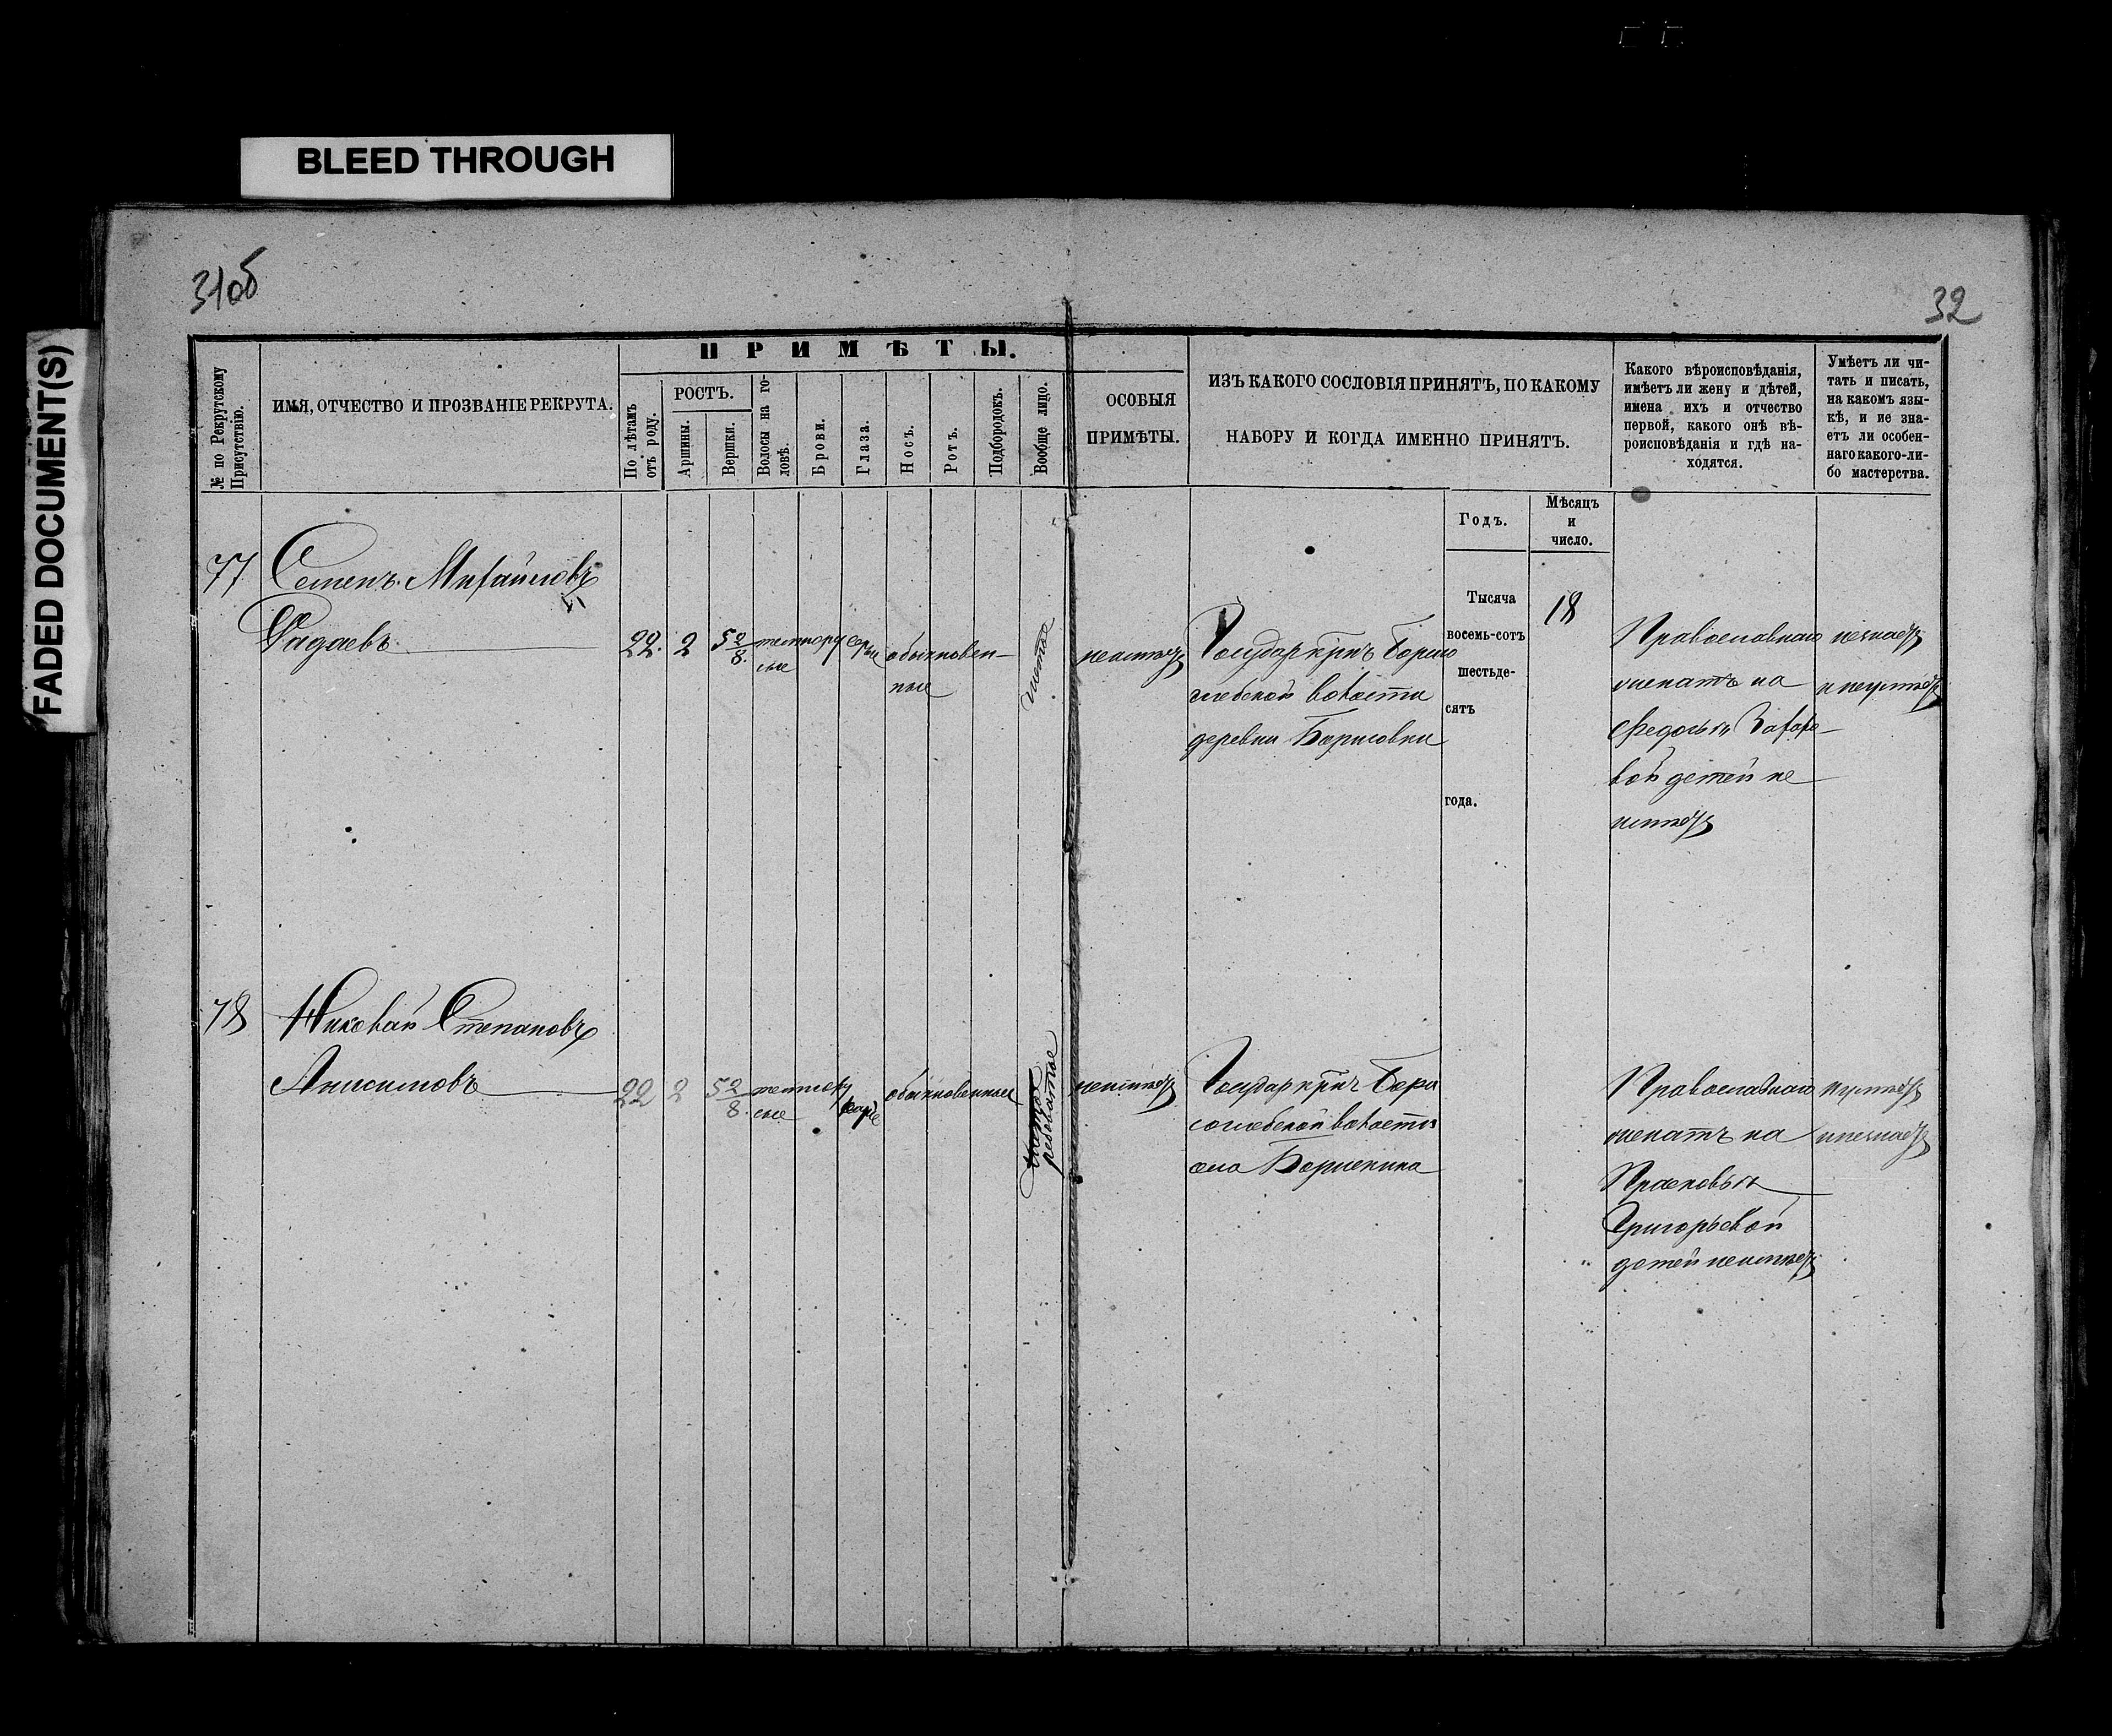 BLEED THROUGH
FADED DOCUMENT(S)
31об
32
№ по Рекрутскому Присутствію.
ИМЯ, ОТЧЕСТВО И ПРОЗВАНІЕ РЕКРУТА.
ПРИМѢТЫ.
По лѣтамъ отъ роду.
РОСТЪ.
Аршины.
Вершки.
Волосы на го-
ловѣ.
Брови.
Глаза.
Носъ.
Ротъ.
Подбородокъ.
Вообще лицо.
ОСОБЫЯ
ПРИМѢТЫ.
ИЗЪ КАКОГО СОСЛОВІЯ ПРИНЯТЪ, ПО КАКОМУ
НАБОРУ И КОГДА ИМЕННО ПРИНЯТЪ.
Годъ.
Мѣсяцъ
и
число.
Какого вѣроисповѣданія,
имѣетъ ли жену и дѣтей,
имена ихъ и отчество
первой, какого онѣ вѣ-
роисповѣданія и гдѣ на-
ходятся.
Умѣетъ ли чи-
тать и писать,
на какомъ язы-
кѣ, и не зна-
етъ ли особен-
наго какого-ли-
бо мастерства.
77
Семенъ Михайловъ
Фадаевъ
22. 2 5 2/8.
темнору
сые
серые
обыкновен-
ные
чистое
неимѣетъ
Государ крѣп Борисо
глебской волости
деревни Борисовки
Тысяча
восемь-сотъ
шестьде-
сятъ
года.
18
Православнаго
женатъ на
Федосьи Захаро-
вой детей не
имѣетъ
незнаетъ
и неумѣетъ
78
Николай Степановъ
Анисимовъ
22 2 5 2/8
темнору
сые
карие
обыкновенные
рябоватое
неимѣетъ
Государ крѣп Бори
соглебской волости
села Борискина
Православнаго
женатъ на
Прасковьи
Григорьевой
детей неимѣетъ
неумѣетъ
и незнаетъ